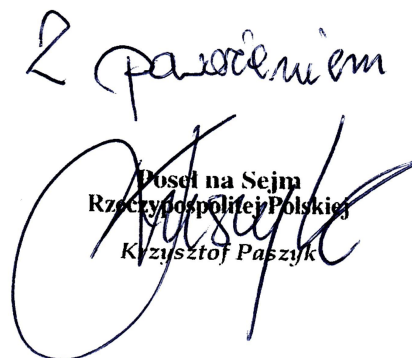 Z poważeniem
Poseł na Sejm
Rzeczypospolitej Polskiej
Krzysztof Paszyk